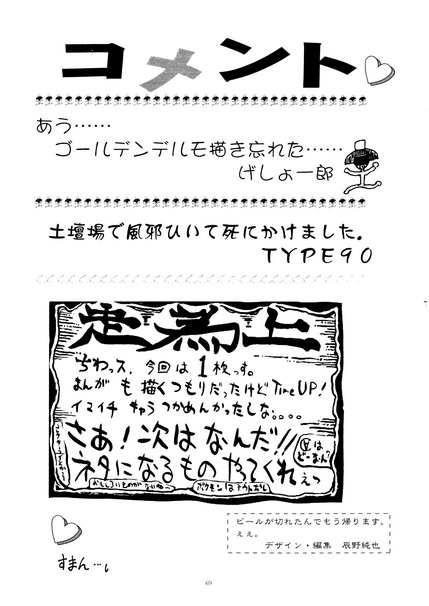 コメント
あう……
ゴールデンデルモ描き忘れた……
げしょ一郎
土壇場で風邪ひいて死にかけました。
TYPE90
走為上
ちわっス、今回は1枚っす。
まんが も 描くつもりだったけど Time UP!
イマイチ キャラ つかめんかったしな。。。。
さあ!次はなんだ!!
ネタになるものやてくれぇっ
ビールが切れたんでもう帰ります。
ええ。
デザイン・編集 辰野純也
すまん…